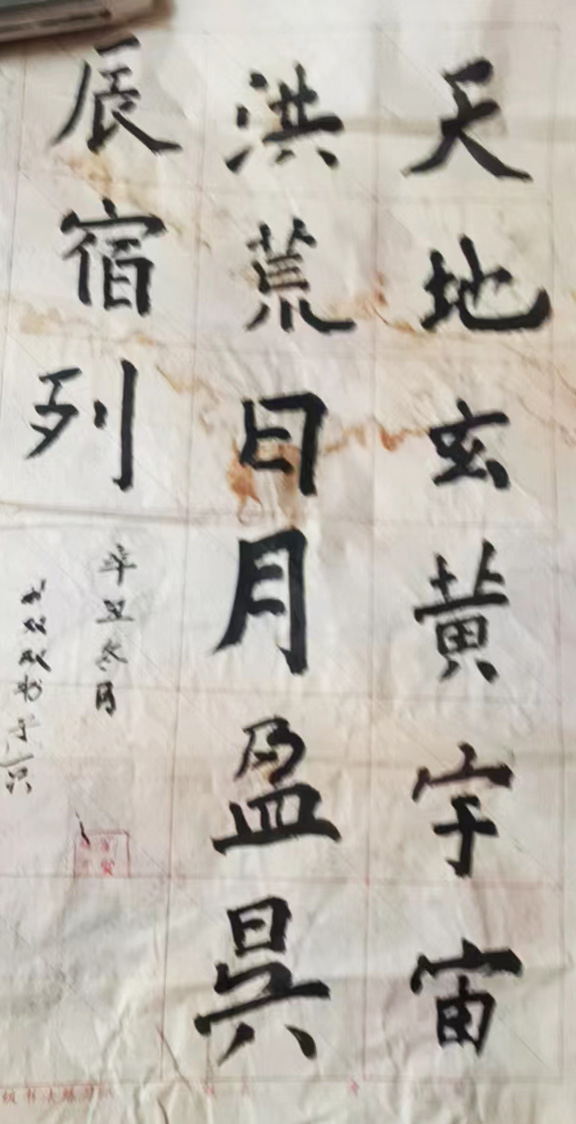 天地玄黄宇宙
洪荒日月盈昃
辰宿列
辛丑冬月
级书法练习纸